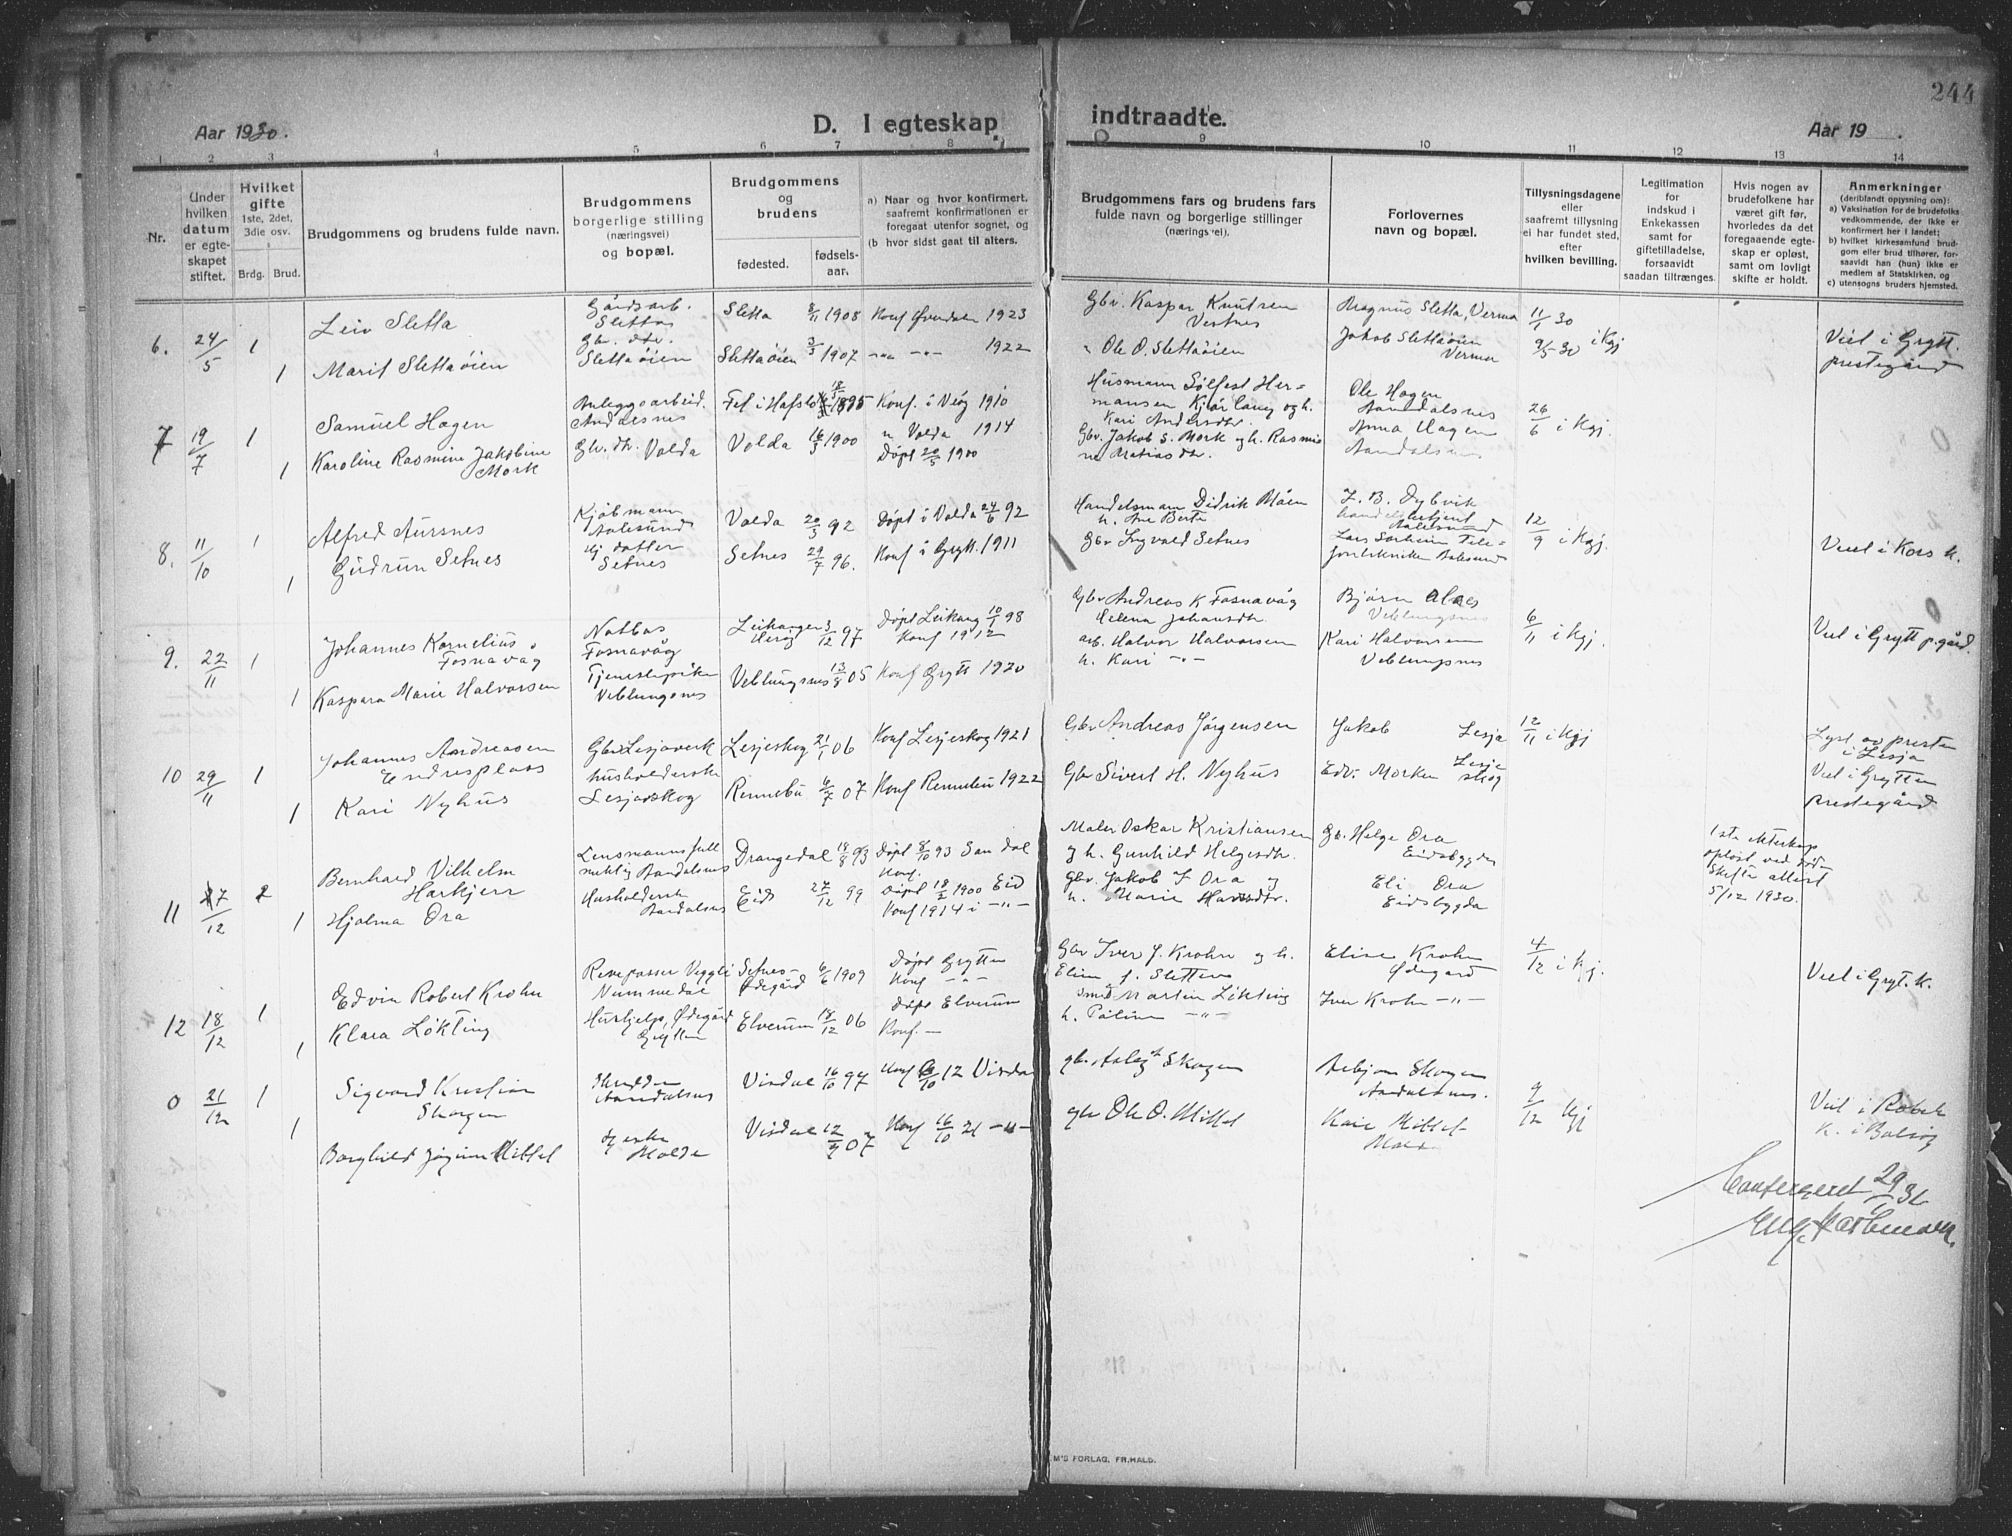 244
Aar 1930.
D. I egteskap
indtraadte.
Aar 19 .
1 2 3 4 5 6 7 8 9 10 11 12 13 14
Nr.
Under hvilken datum er egteskapet stiftet.
Hvilket gifte 1ste, 2det, 3die osv.
Brdg. Brud.
Brudgommens og brudens fulde navn.
Brudgommens borgerlige stilling (næringsvei) og bopæl.
Brudgommens og brudens
fødested. fødselsaar.
a) Naar og hvor konfirmert, saafremt konfirmationen er foregaat utenfor sognet, og
(b hvor sidst gaat til alters.
Brudgommens fars og brudens fars fulde navn og borgerlige stillinger (næringsvei).
Forlovernes navn og bopæl.
Tillysningsdagene eller saafremt tillysning ei har fundet sted, efter hvilken bevilling.
Legitimation for indskud i Enkekassen samt for giftetilladelse, forsaavidt saadan tiltrænges.
Hvis nogen av brudefolkene har været gift før, hvorledes da det foregaaende egteskap er opløst, samt om lovligt skifte er holdt.
Anmerkninger (deriblandt opysning om):
a) Vaksination for de brudefolks vedkommende, der ikke er konfirmert her i landet;
b) hvilket kirkesamfund brudgom eller brud tilhører, forsaavidt han (hun) ikke er medlem af Statskirken, og
c) utensogns bruders hjemsted.
6. 24/5 1 Leiv Sletta Gårdsarb. Slettas Sletta 8/11 1908 Konf Øvredalen 1923 Gbr. Kaspar Knutsen Vestnes Magnus Sletta, Verma 11/1 30
1 Marit Slettaøien Gbr. dtr. Slettaøien Slettaøien 3/3 1907 -"- -"- 1922 " Ole O. Slettaøien Jakob Slettaøien Verma 9/5 30 i Kgj Viet i Grytt. prestegård
7 19/7 1 Samuel Hagen Anleggsarbeid. Andalsnes Fet i Hafslo 1895 Konf. i Veøy 1910 Husmann Sølfest Hermansen og h. Kari Andersdtr. Ole Hagen Aandalsnes 26/6 i Kgj.
1 Karoline Rasmine Jakobine Mork Gbr. dtr. Volda Volda 16/3 1900 " Volda 1914 Døpt 20/5 1900 Gbr. Jakob S. Mork og h. Rasmine Matiasdtr. Anna Hagen Aandalsnes
8. 11/10 1 Alfred Aursnes Kjøbmann Aalesund Volda 20/3 92 Døpt i Volda 24/6 92 Handelsmann Didrik Måen h. Ane Berte Z. B. Dybvik Aalesund 12/9 i Kgj.
1 Gudrun Setnes Gj datter Setnes Setnes 29/7 96. Konf i Grytt. 1911 Gbr Ingvald Setnes Lars Telefontekniker Aalesund Viet i Kors k.
9. 22/11 1 Johannes Kornelius Fosnavåg Notbas Fosnavåg Leikanger Herøy 3/12 97 Døpt Leikang 10/1 98 Konf 1912 Gbr Andreas K Fosnavåg Helena Johansdtr. Bjørn Veblungsnes 6/11 i Kgj. Viet i Grytt p.gård.
1 Kaspara Marie Halvorsen Tjenestepike Veblungsnes Veblungsnes 13/8 05 Konf Grytt 1920 arb. Halvor Halvorsen h. Kari -"- Kari Halvorsen Veblungsnes
10 29/11 1 Johannes Andreasen Endresplass Gbr Lesjaverk Lesjeskog 21/1 06 Konf Lesjeskog 1921 Gbr Andreas Jørgensen Jakob Lesja 12/11 i Kgj Lyst av presten i Lesja
1 Kari Nyhus husholderske Lesjaskog Rennebu 6/7 07 Konf Rennebu 1922 Gbr Sivert H. Nyhus Edv. Morken Lesjeskog Viet i Grytten prestegård
11 17/12 2 Bernhard Vilhelm Harkjerr Lensmannsfullmektig Aandalsnes Drangedal 18/8 93 Døpt 8/10 93 Sandal Konf. Maler Oskar Kristiansen og h. Gunhild Helgesdtr. Gb. Helge Ora Eidsbygda 1ste ekteskap opløst ved død Skifte attest 5/12 1930.
1 Hjalma Ora Husholderske Aandalsnes Eid 27/12 99 Døpt 18/2 1900 Eid Konf 1914 i -"- Gbr. Jakob J Ora og h. Marie Eli Ora Eidsbygda
12 18/12 1 Edvin Robert Krohn Revepasser Veggli Nummedal Setnes-Ødegård 6/6 1909 Døpt Grytten Konf -"- Gbr Iver J. Krohn og h. Eline f. Sletten Elise Krohn Ødegård 4/12 i Kgj. Viet i Gryt. k.
1 Klara Løkting Hushjelp, Ødegård Grytten Elverum 18/12 06 Døpt Elverum Konf. - Smed Martin Løkting h. Paline -"- Iver Krohn -"-
0 21/12 1 Sigvard Kristian Skorgen Aandalsnes Visdal 16/10 97 Konf 6/10 12 Visdal gbr. Skogen Skogen Aandalsnes. 9/12 Kgj Viet i Røbek k. i Bolsøy
1 Borghild Mittet Molde Visdal 12/9 07 Konf 16/10 21 -"- gbr Ole O. Mittet Kari Mittet Molde
Confereret 29/1 31
M'S FORLAG, FR.HALD.